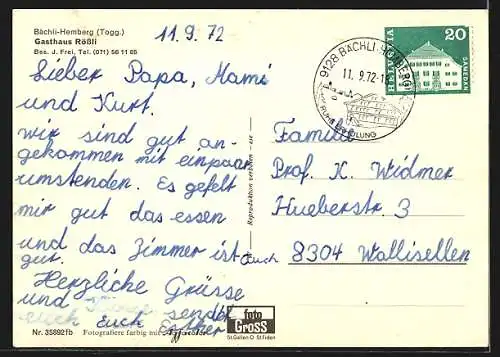 Bächli-Hemberg (Togg.)
Gasthaus Rößli
Bes. J. Frei, Tel. (071) 56 11 65
11.9.72
Lieber Papa, Mami
und Kurt.
wir sind gut an-
gekommen mit einpaar
umstenden. Es gefelt
mir gut das essen
und das Zimmer ist auch
gut.
Herzliche Grüsse
und sendet
euch Euch Esther
Nr. 35892fb Fotografiere farbig mit
Reproduktion verboten
foto
GROSS
St. Gallen O St Fiden
9128 BÄCHLI-HEMBERG
11. 9.72-1
HELVETIA
20
SAMEDAN
Familie
Prof. K. Widmer
Hueberstr. 3
8304 Wallisellen